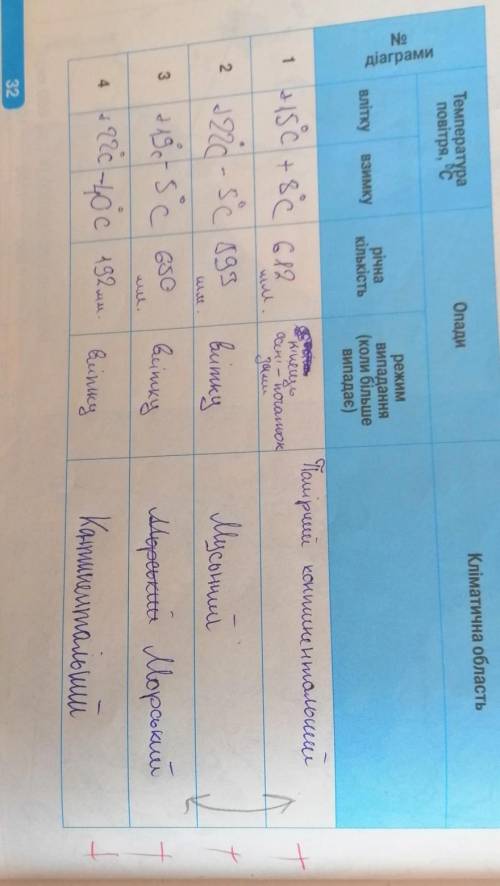 №
діаграми
Температура
повітря, °С
влітку
взимку
Опади
річна
кількість
режим
випадання
(коли більше
випадає)
Кліматична область
1
+15°С
+8°С
612
мм.
кінець
осені - початок
зими
Помірний континентальний
2
+22°С
-5°С
899
мм.
влітку
Мусонний
3
+19°С
-5°С
650
мм.
влітку
Морський Морський
4
+22°С
-40°С
192 мм.
влітку
Континентальний
32